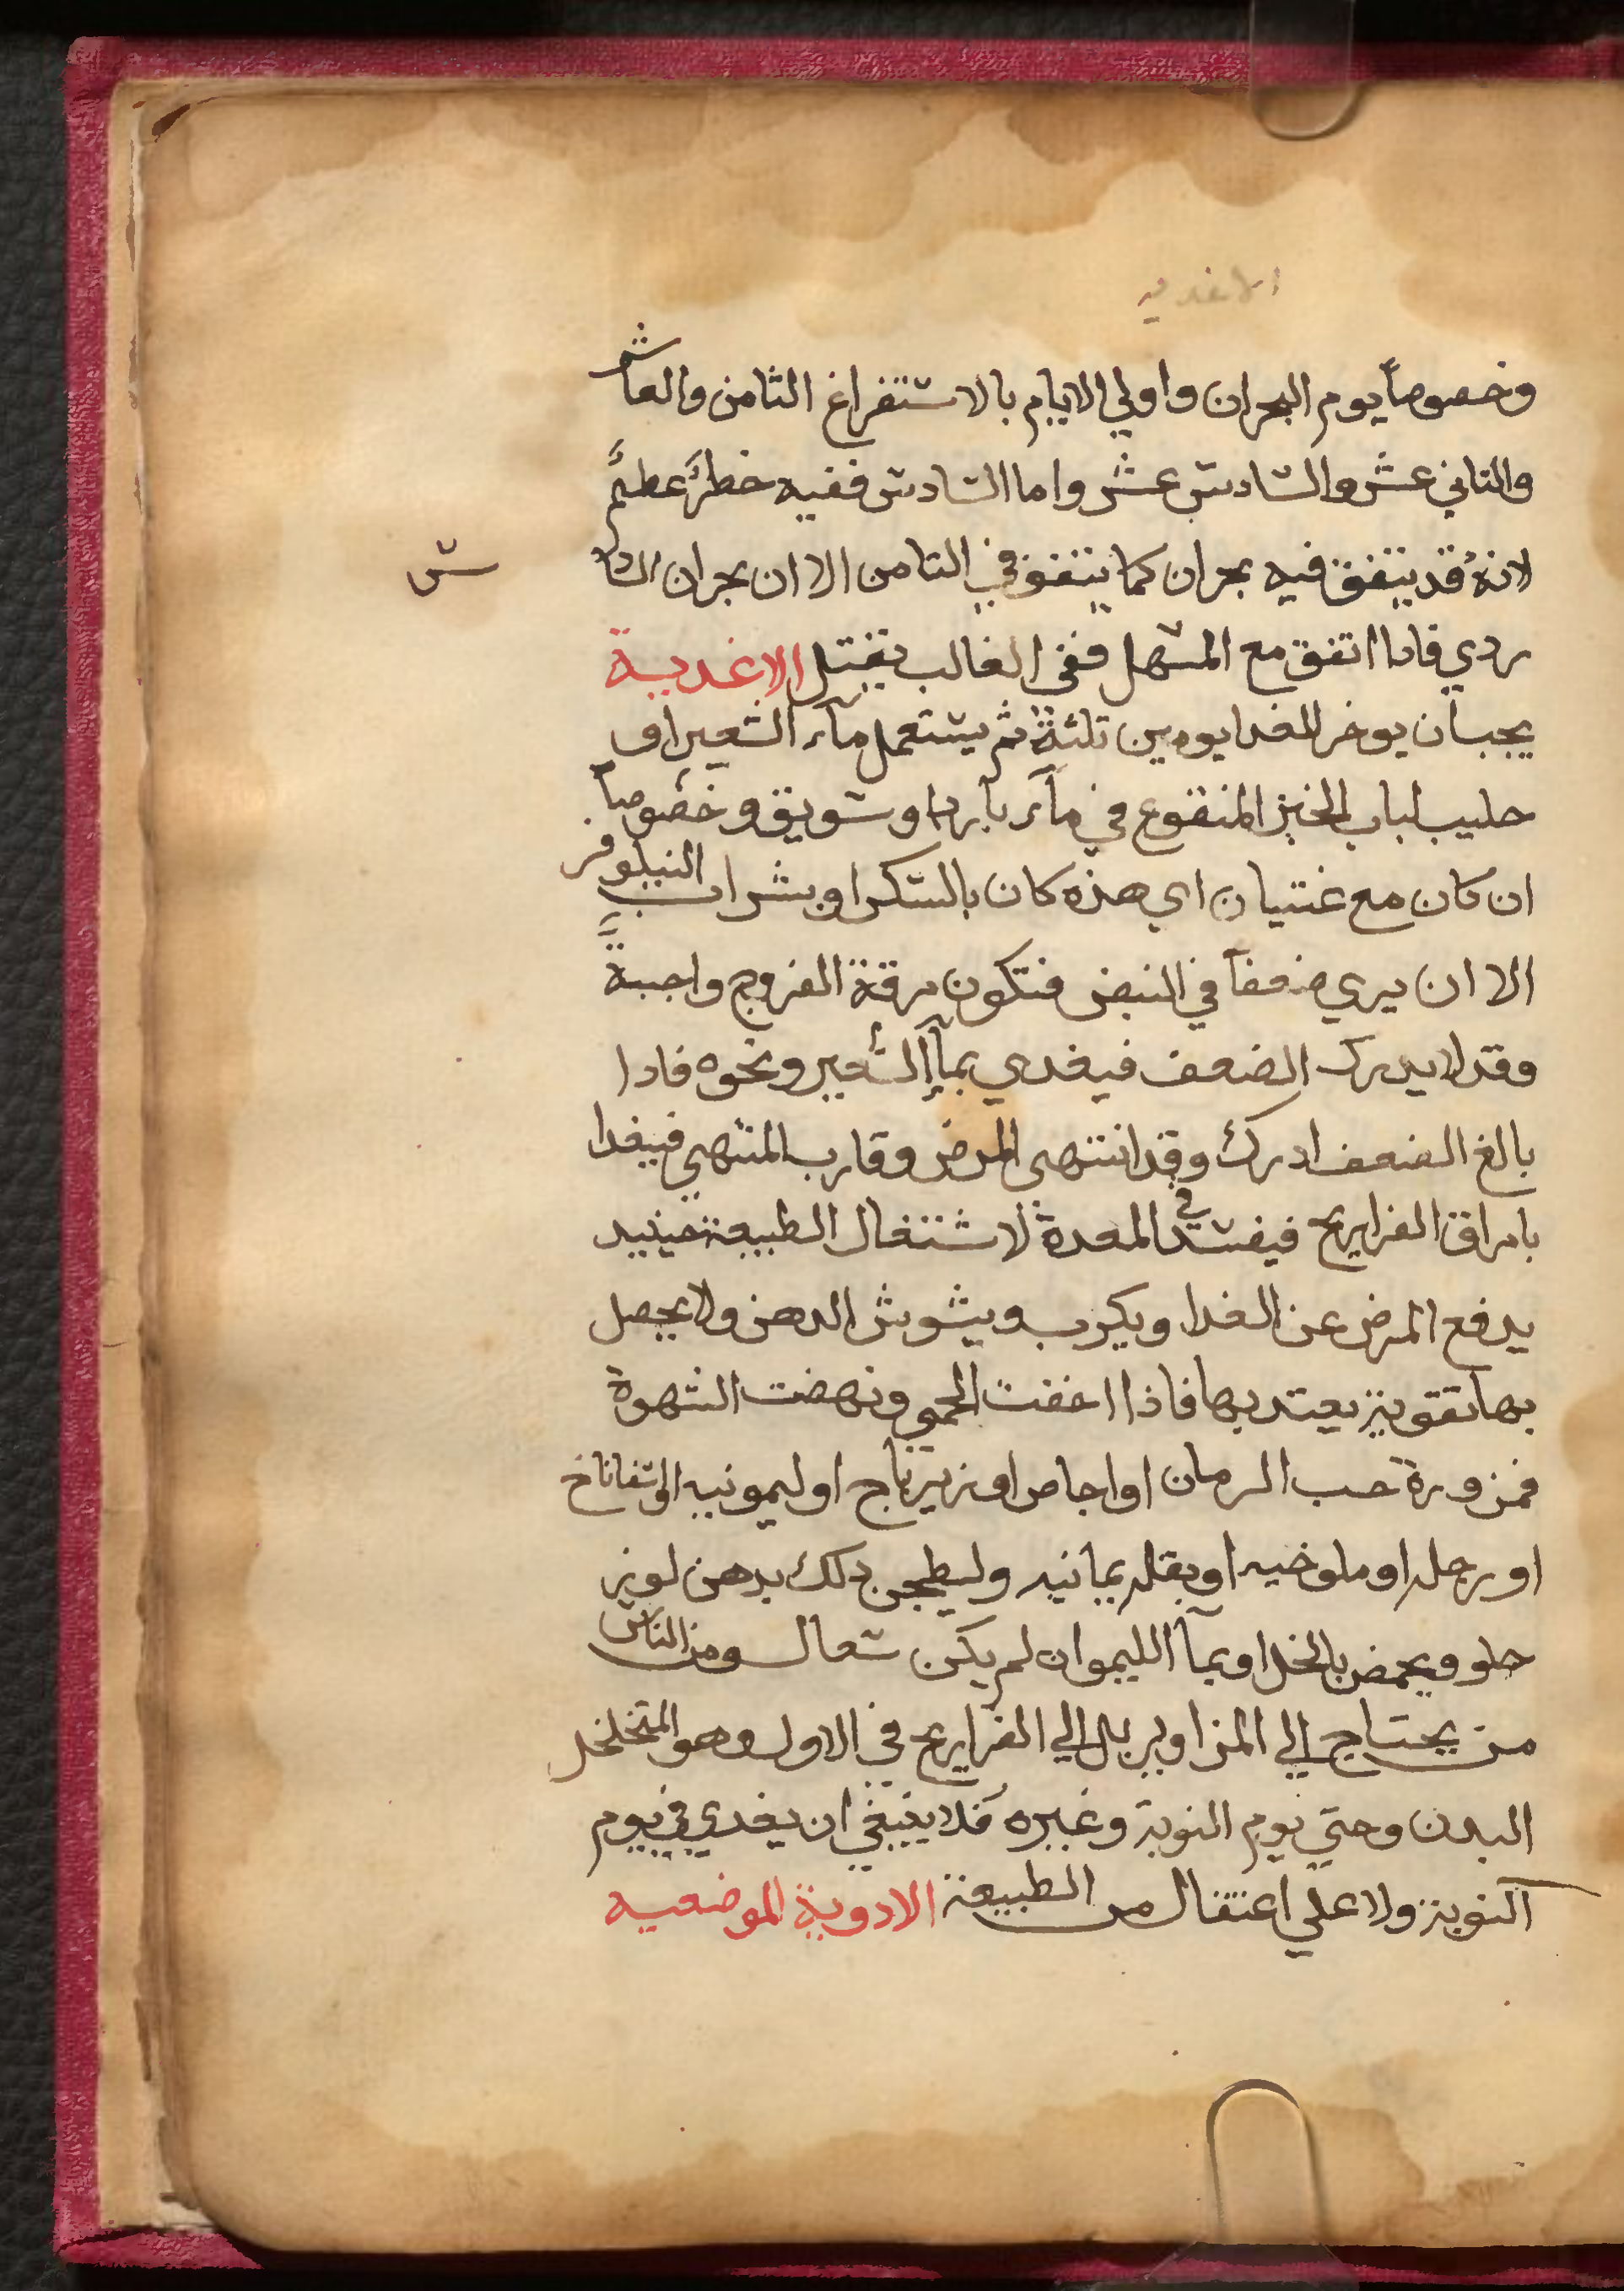 الاغديه
وخصوصاً يوم البحران واولي الايام بالاستفراغ الثامن والعاشر
والثاني عشر والسادس عشر واما السادس ففيه خطرٌ عظيمٌ
لانهُ قد يتفق فيه بحران كما يتفق في الثامن الا ان بحران السادس
ردي فادا اتفق مع المسهل ففي الغالب يقتل الاغدية
يجب ان يوخر للغدا يومين ثلثة ثم يستعمل مآء الشعير او
حليب لباب الخبز المنقوع في مآء بارد او سويق وخصوصاً
ان كان مع غتيان اي هذه كان بالسكر او بشراب النيلوفر
الا ان يري ضعفاً في النبض فتكون مرقة الفروج واجبةً
وقد لا يدرك الضعف فيغدي بمآ الشعير ونحوه فادا
بالغ الضعف ادرك وقد انتهى المرض وقارب المنتهي فيغدا
بامراق الفراريج فيفسد في المعدة لاشتغال الطبيعة حينيد
يدفع المرض عن الغدا ويكرب ويشوش الدهن ولا يحصل
بها تقوية يعتد بها فاذا اخفت الحمي ونهضت الشهوة
فمزورة حب الرمان او اجاص او زيرباج او ليمونيه او اسفاناخ
او رجله او ملوخيه او بقله يمانيه وليطجن دلك بدهن لوز
حلو ويحمض بالخل او بمآ الليمو ان لم يكن سعال ومن الناس
من يحتاج الي المزاوير بل الي الفراريج في الاول وهو المتخلخل
البدن وحتي يوم النوبة وغيره فلا ينبغي ان يغدي في يوم
النوبة ولا علي اعتقال من الطبيعة الادوية الموضعيه